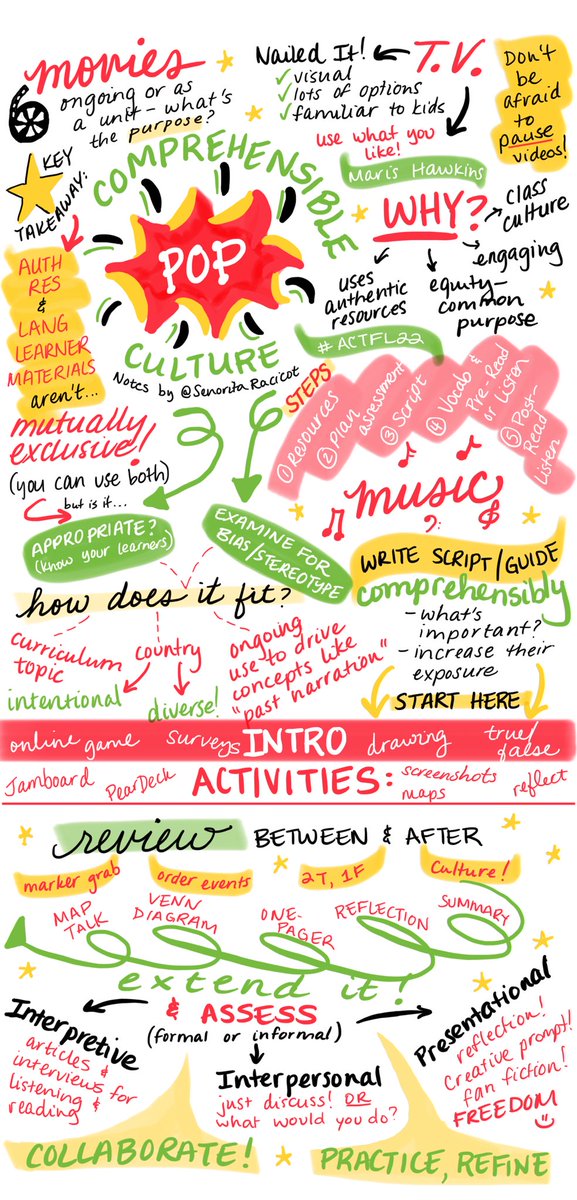 movies
ongoing or as
a unit - what's
the purpose?
Nailed It!
✓ visual
✓ lots of options
✓ familiar to kids
T.V.
Don't
be
afraid
to
pause
videos!
use what you
like!
Maris Hawkins
KEY
TAKEAWAY:
COMPREHENSIBLE
POP
CULTURE
Notes by @SenoritaRacicot
WHY?
class
culture
engaging
equity-
common
purpose
uses
authentic
resources
#ACTFL22
AUTH
RES
&
LANG
LEARNER
MATERIALS
aren't...
mutually
exclusive!
(you can use both)
but is it...
APPROPRIATE?
(know your learners)
EXAMINE FOR
BIAS/STEREOTYPE
STEPS
① Resources
② Plan
assessment
③ Script
④ Vocab &
Pre-Read
or Listen
⑤ Post-
Read
Listen
music
WRITE SCRIPT/GUIDE
comprehensibly
- what's
important?
- increase their
exposure
START HERE
how does it fit?
curriculum
topic
country
intentional
diverse!
ongoing
use to drive
concepts like
"past narration"
online game
surveys
INTRO
drawing
true/
false
Jamboard
PearDeck
ACTIVITIES:
screenshots
maps
reflect
review BETWEEN & AFTER
marker grab
order events
2T, 1F
Culture!
MAP
TALK
VENN
DIAGRAM
ONE-
PAGER
REFLECTION
SUMMARY
extend it!
& ASSESS
(formal or informal)
Interpretive
articles &
interviews for
listening &
reading
Interpersonal
just discuss! OR
what would you do?
Presentational
reflection!
Creative prompt!
fan fiction!
FREEDOM
COLLABORATE!
PRACTICE, REFINE